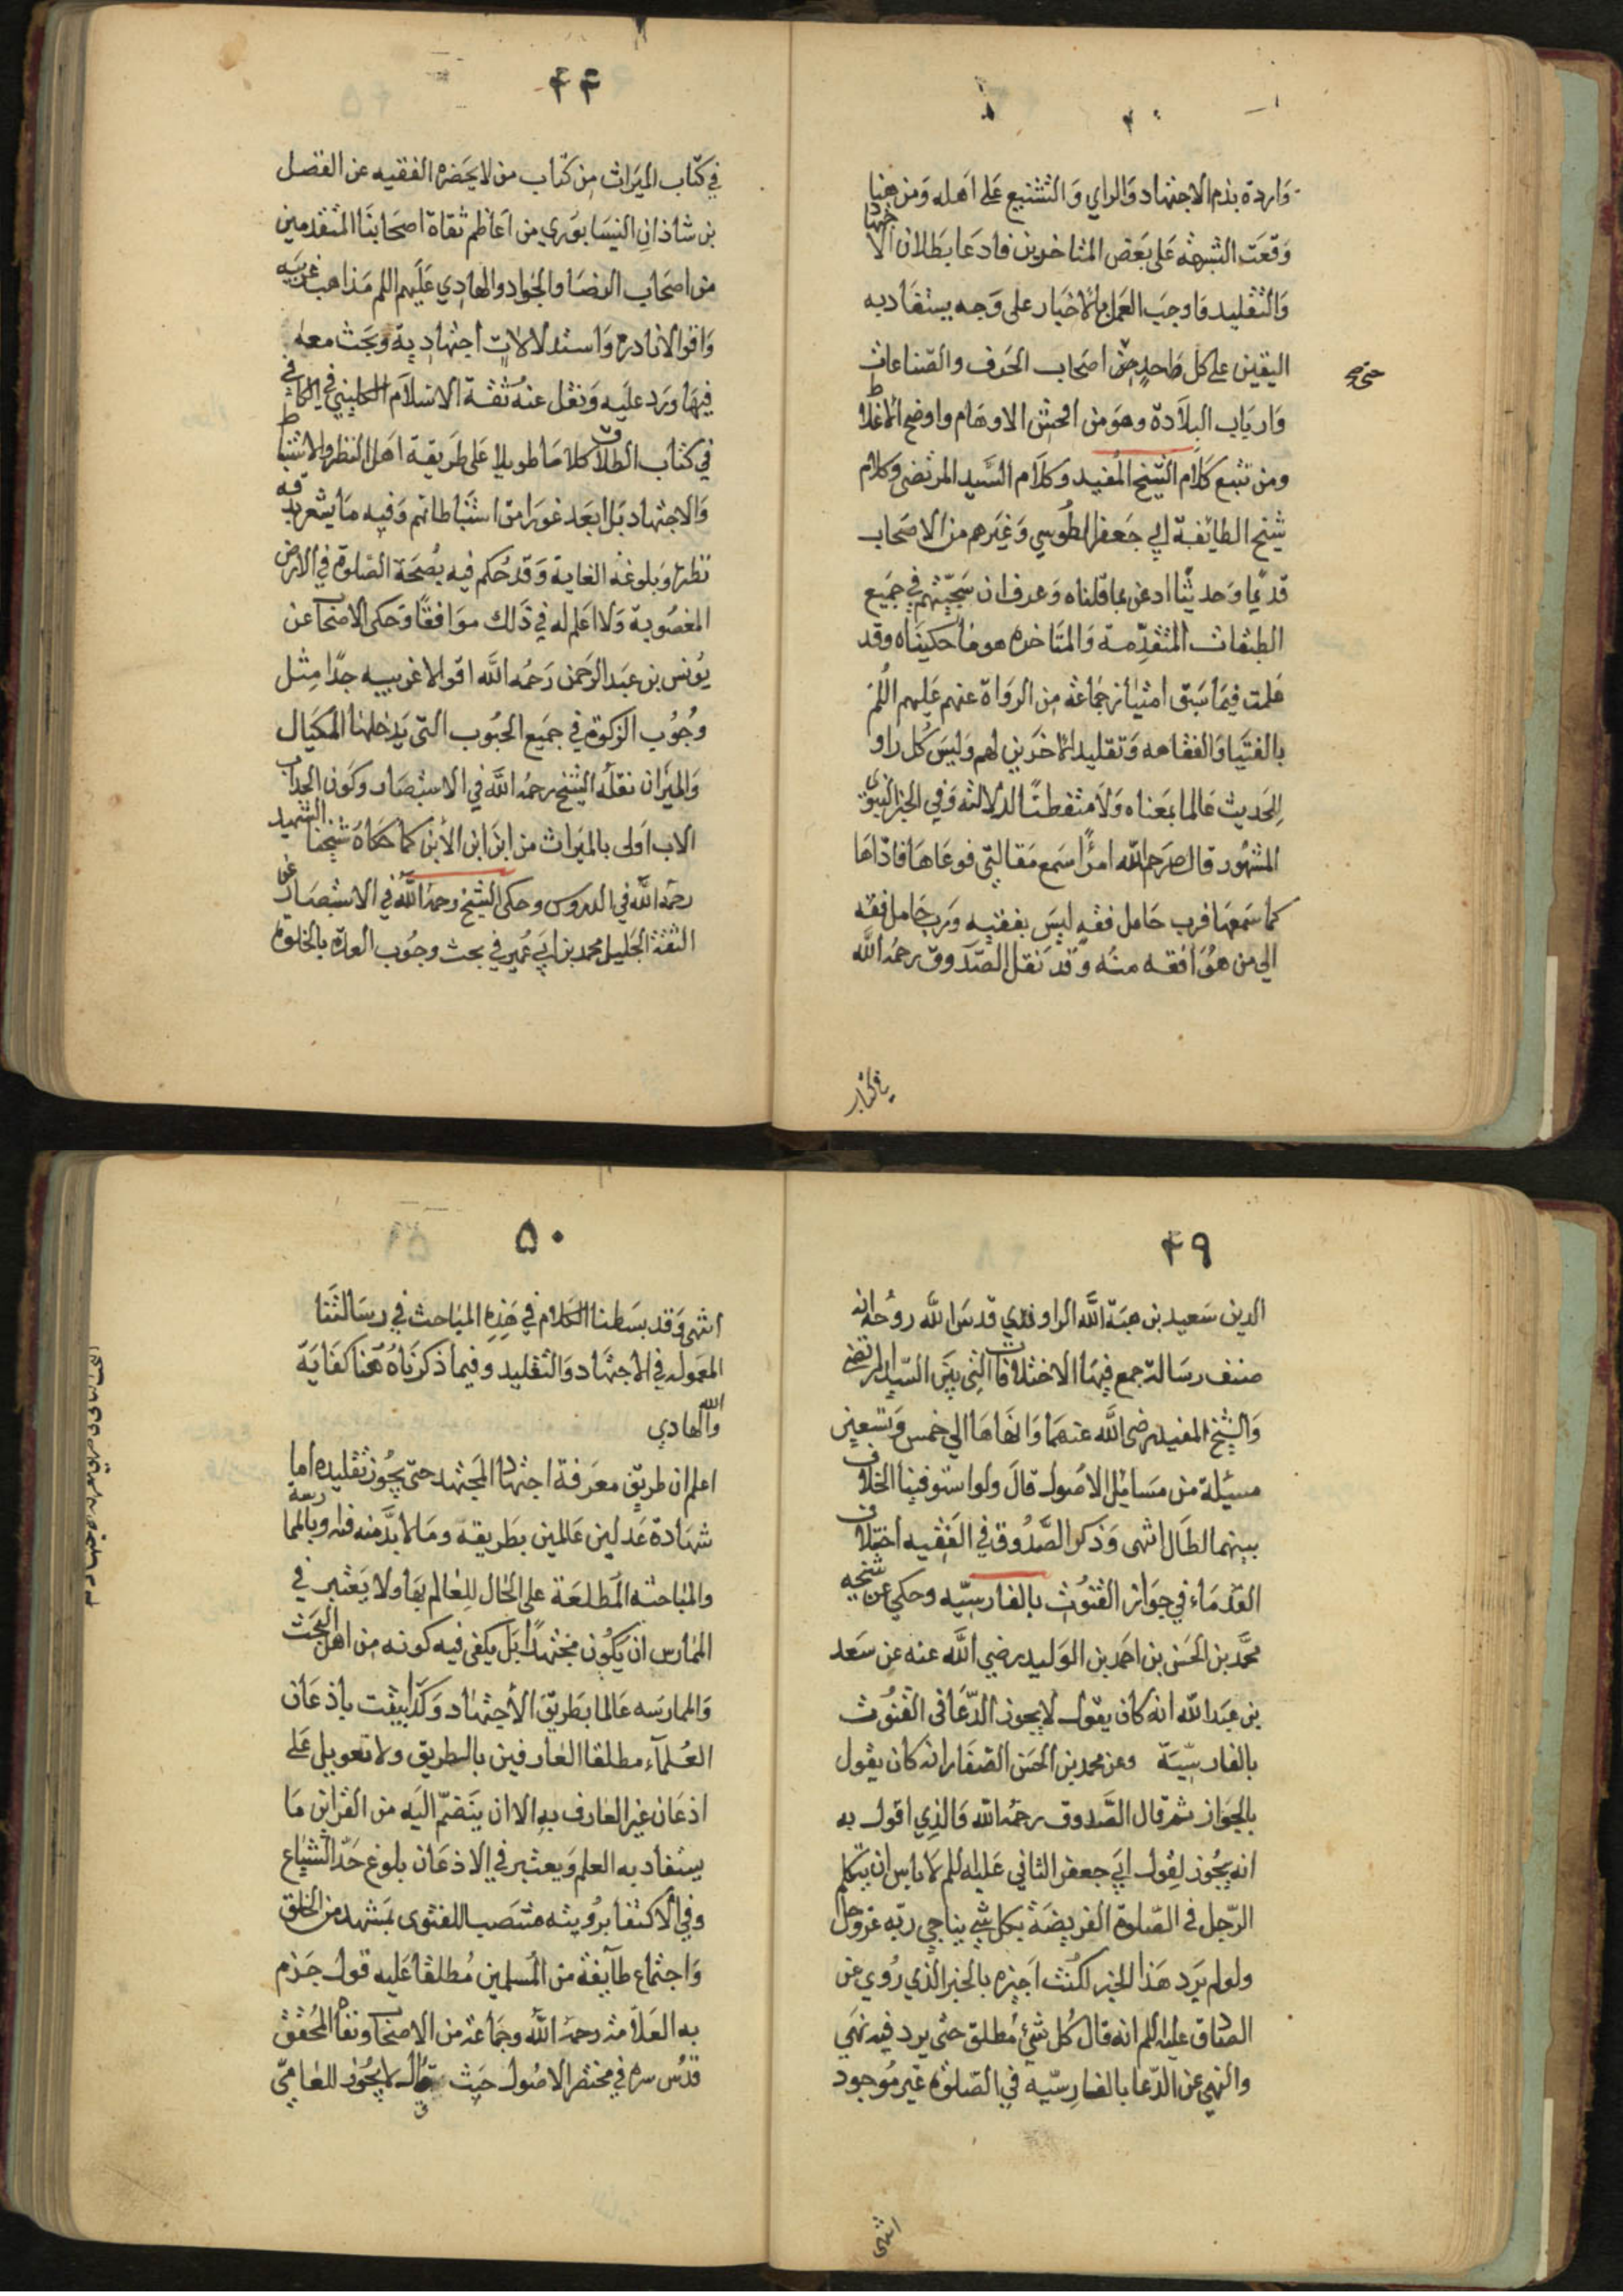 واردة بذم الاجتهاد والراي والتشنيع على اهله ومن هنا
وقعت الشبهه على بعض المتاخرين فادعا بطلان الاجتهاد
والتقليد واوجب العمل بالاخبار على وجه يستفاد به
اليقين على كل واحد من اصحاب الحرف والصناعات
حتى صح
وارباب البلادة وهو من افحش الاوهام واوضح الاغلاط
ومن تتبع كلام الشيخ المفيد وكلام السيد المرتضى وكلام
شيخ الطايفة ابي جعفر الطوسي وغيرهم من الاصحاب
قديما وحديثا اذعن بما قلناه وعرف ان سجيتهم في جميع
الطبقات المتقدمة والمتاخره هو ما حكيناه وقد
علمت فيما سبق امتياز جماعة من الرواة عنهم عليهم اللم
بالفتيا والفقاهه وتقليد الاخرين لهم وليس كل راو
للحديث عالما بمعناه ولا متفطنا لدلالته وفي الخبر النبوى
المشهور قال ص رحم الله امرًا سمع مقالتي فوعاها فاداها
كما سمعها فرب حامل فقه ليس بفقيه ورب حامل فقه
الى من هو افقه منه وقد نقل الصدوق رحمه الله
في كتاب
۴۴
في كتاب الميراث من كتاب من لا يحضره الفقيه عن الفضل
بن شاذان النيسابوري من اعاظم ثقاة اصحابنا المتقدمين
من اصحاب الرضا والجواد والهادي عليهم اللم مذاهب غريبه
واقوالا نادرة واستدلالات اجتهادية وبحث معه
فيها ورد عليه ونقل عنه ثقة الاسلام الكليني في الكافي
في كتاب الطلاق كلاما طويلا على طريقة اهل النظر والاستنباط
والاجتهاد بل ابعد غورا من استنباطاتهم وفيه ما يشعر بدقه
نظره وبلوغه الغاية وقد حكم فيه بصحة الصلوة في الارض
المغصوبة ولا اعلم له في ذلك موافقا وحكى الاصحاب عن
يونس بن عبد الرحمن رحمه الله اقوالا غريبه جدا مثل
وجوب الزكوة في جميع الحبوب التي يدخلها المكيال
والميزان نقله الشيخ رحمه الله في الاستبصار وكون الجد اب
الاب اولى بالميراث من ابن ابن الابن كما حكاه شيخنا الشهيد
رحمه الله في الدروس وحكى الشيخ رحمه الله في الاستبصار عن
الثقة الجليل محمد بن ابي عمير في بحث وجوب العدة بالخلوة
۴۹
الدين سعيد بن هبة الله الراوندي قدس الله روحه انه
صنف رسالة جمع فيها الاختلافات التي بين السيد المرتضى
والشيخ المفيد رضى الله عنهما وانهاها الى خمس وتسعين
مسئلة من مسايل الاصول قال ولو استوفينا الخلاف
بينهما لطال انتهى وذكر الصدوق في الفقيه اختلاف
القدماء في جواز القنوت بالفارسيه وحكى عن شيخه
محمد بن الحسن بن احمد بن الوليد رضي الله عنه عن سعد
بن عبد الله انه كان يقول لا يجوز الدعا في القنوت
بالفارسيّة وعن محمد بن الحسن الصفار انه كان يقول
بالجواز ثم قال الصدوق رحمه الله والذي اقول به
انه يجوز لقول ابي جعفر الثاني عليه اللم لا باس ان يتكلم
الرجل في الصلوة الفريضة بكل شي يناجي ربه عز وجل
ولو لم يرد هذا الخبر لكنت اجيزه بالخبر الذي روي عن
الصادق عليه اللم انه قال كل شيء مطلق حتى يرد فيه نهي
والنهي عن الدعا بالفارسيه في الصلوة غير موجود
انتهى
۵۰
انتهى وقد بسطنا الكلام في هذه المباحث في رسالتنا
المعموله في الاجتهاد والتقليد وفيما ذكرناه هنا كفاية
والله الهادي
اعلم ان طريق معرفة اجتهاد المجتهد حتى يجوز تقليده اما
شهادة عدلين عالمين بطريقه وما لا بد منه فيه وبالممارسة
والمباحثه المطلعة على الحال للعالم بها ولا يعتبر في
الممارس ان يكون مجتهدا بل يكفى فيه كونه من اهل البحث
والممارسه عالما بطريق الاجتهاد وكذا يثبت باذعان
العلماء مطلقا العارفين بالطريق ولا تعويل على
اذعان غير العارف به الا ان ينضم اليه من القراين ما
يستفاد به العلم ويعتبر في الاذعان بلوغ حد الشياع
وفي الاكتفا برؤيته منتصبا للفتوى بمشهد من الخلق
واجتماع طايفة من المسلمين مطلقا عليه قول جزم
به العلامة رحمه الله وجماعة من الاصحاب ونفاه المحقق
قدس سره في مختصر الاصول حيث قال لا يجوز للعامّي